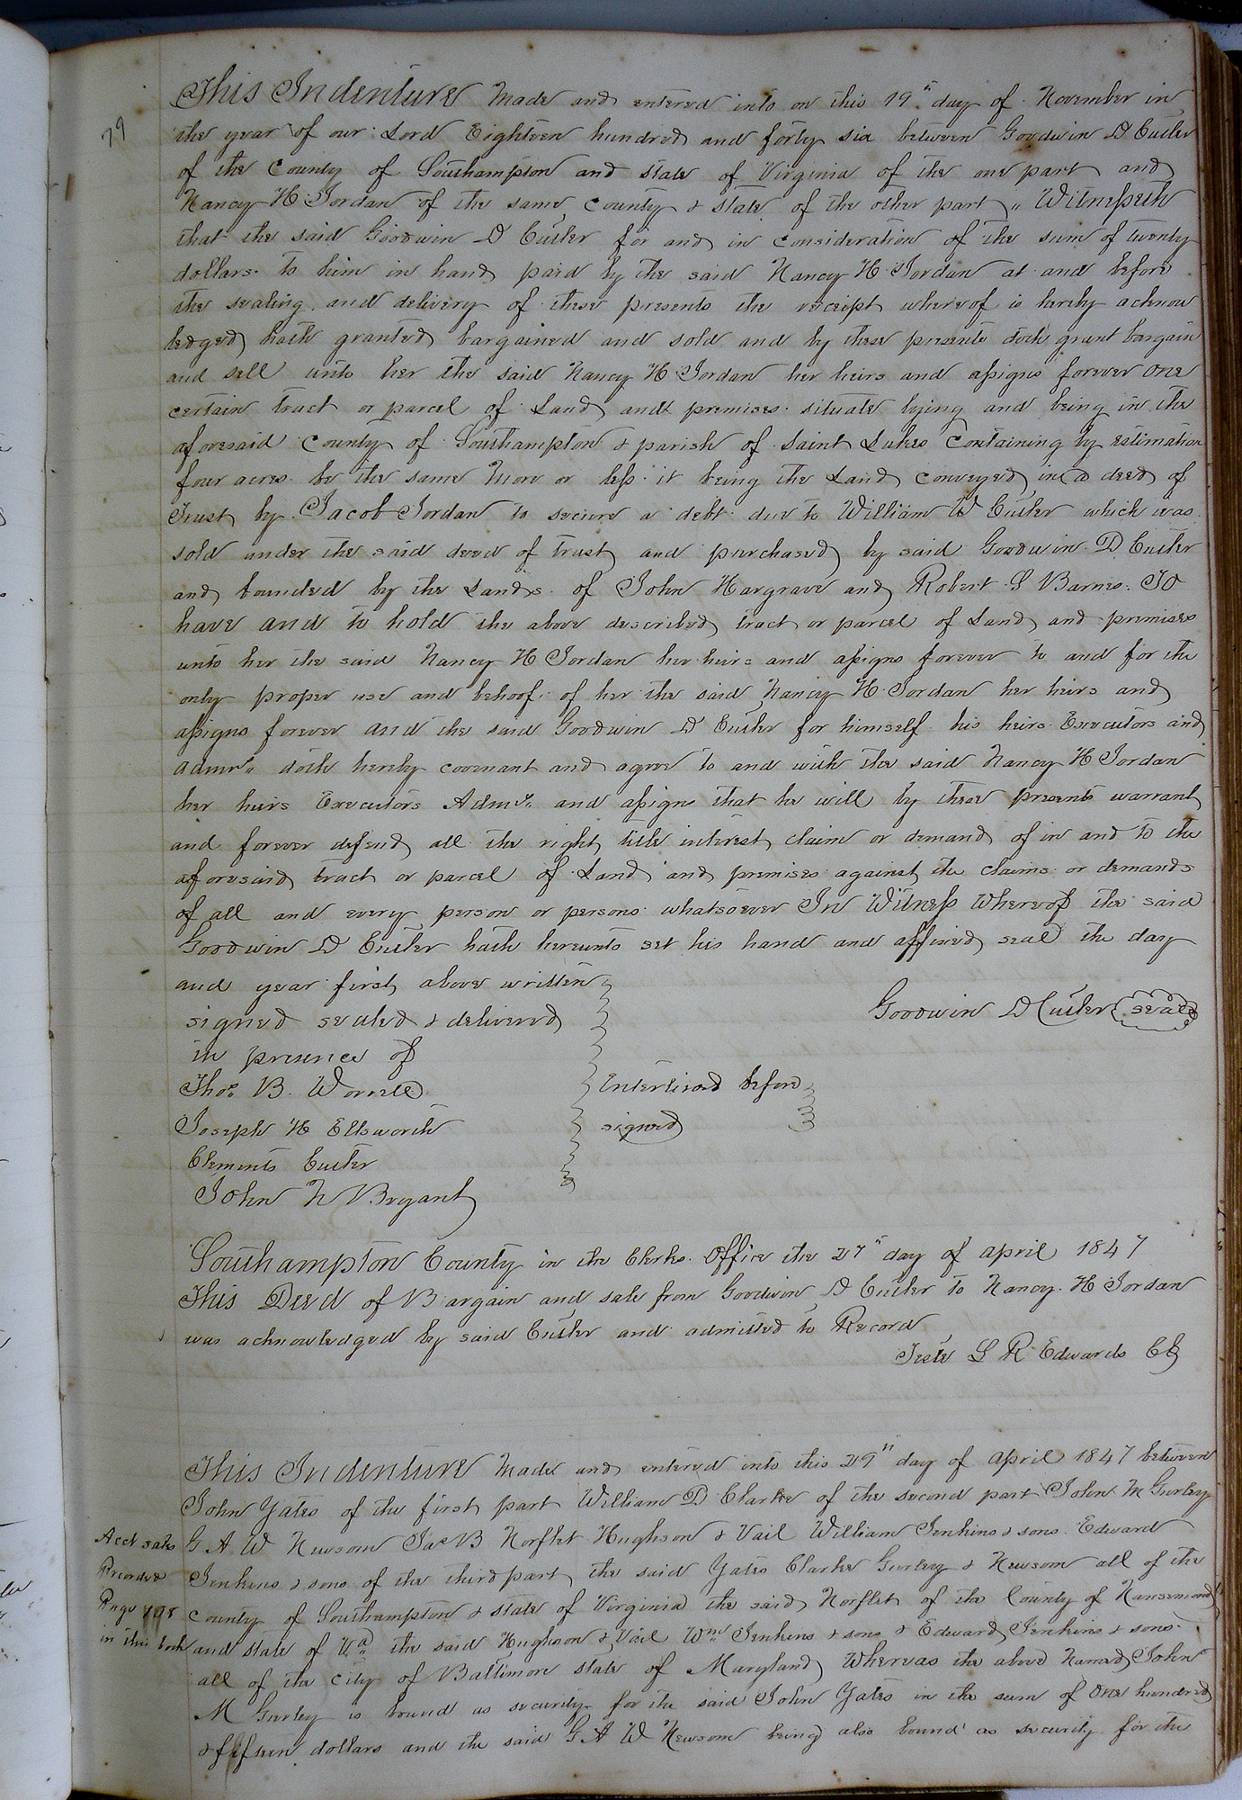 79
This Indenture Made and entered into on this 19th day of November in
the year of our Lord Eighteen hundred and forty six between Goodwin D Cutler
of the County of Southampton and state of Virginia of the one part and
Nancy H Jordan of the same County & State of the other part, Witnesseth
that the said Goodwin D Cutler for and in consideration of the sum of twenty
dollars to him in hand paid by the said Nancy H Jordan at and before
the sealing and delivery of these presents the receipt whereof is hereby acknow
ledged hath granted bargained and sold and by these presents doth grant bargain
and sell unto her the said Nancy H Jordan her heirs and assigns forever one
certain tract or parcel of Land and premises situate lying and being in the
aforesaid County of Southampton & parish of Saint Lukes Containing by estimation
four acres be the same more or less it being the Land conveyed in a deed of
Trust by Jacob Jordan to secure a debt due to William W Cutler which was
sold under the said deed of trust and purchased by said Goodwin D. Cutler
and bounded by the Lands of John Hargrave and Robert S Barnes. To
have and to hold the above described tract or parcel of Land and premises
unto her the said Nancy H Jordan her heirs and assigns forever to and for the
only proper use and behoof of her the said Nancy H Jordan her heirs and
assigns forever and the said Goodwin D Cutler for himself his heirs Executors and
Admrs. doth hereby covenant and agree to and with the said Nancy H Jordan
her heirs Executors Admrs. and assigns that he will by these presents warrant
and forever defend all the right title interest claim or demand of in and to the
aforesaid tract or parcel of Land and premises against the claims or demands
of all and every person or persons whatsoever In Witness Whereof the said
Goodwin D Cutler hath hereunto set his hand and affixed seal the day
and year first above written
signed sealed & delivered Goodwin D Cutler seal
in presence of
Thos. B. Worrell Interlined before
Joseph H Ellsworth signed
Clements Cutler
John N Bryant
Southampton County in the Clerks Office the 27th day of April 1847
This Deed of Bargain and sale from Goodwin D Cutler to Nancy H Jordan
was acknowledged by said Cutler and admitted to Record
Teste L R Edwards Clk
This Indenture Made and entered into this 29th day of April 1847 between
John Yates of the first part William D Clarke of the second part John M Gurley
Acct sales
G A W Newsom Jas B Norflet Hughson & Vail William Jenkins & sons Edward
Recorded
Jenkins & sons of the third part, the said Yates Clarke Gurley & Newsom all of the
Page
county of Southampton & state of Virginia the said Norflet of the County of Nansemond
in this book
and state of Va. the said Hughson & Vail Wm Jenkins & sons & Edward Jenkins & sons
all of the city of Baltimore state of Maryland, Whereas the above Named John
M Gurley is bound as security for the said John Yates in the sum of One hundred
& fifteen dollars and the said G A W Newsom being also bound as security for the